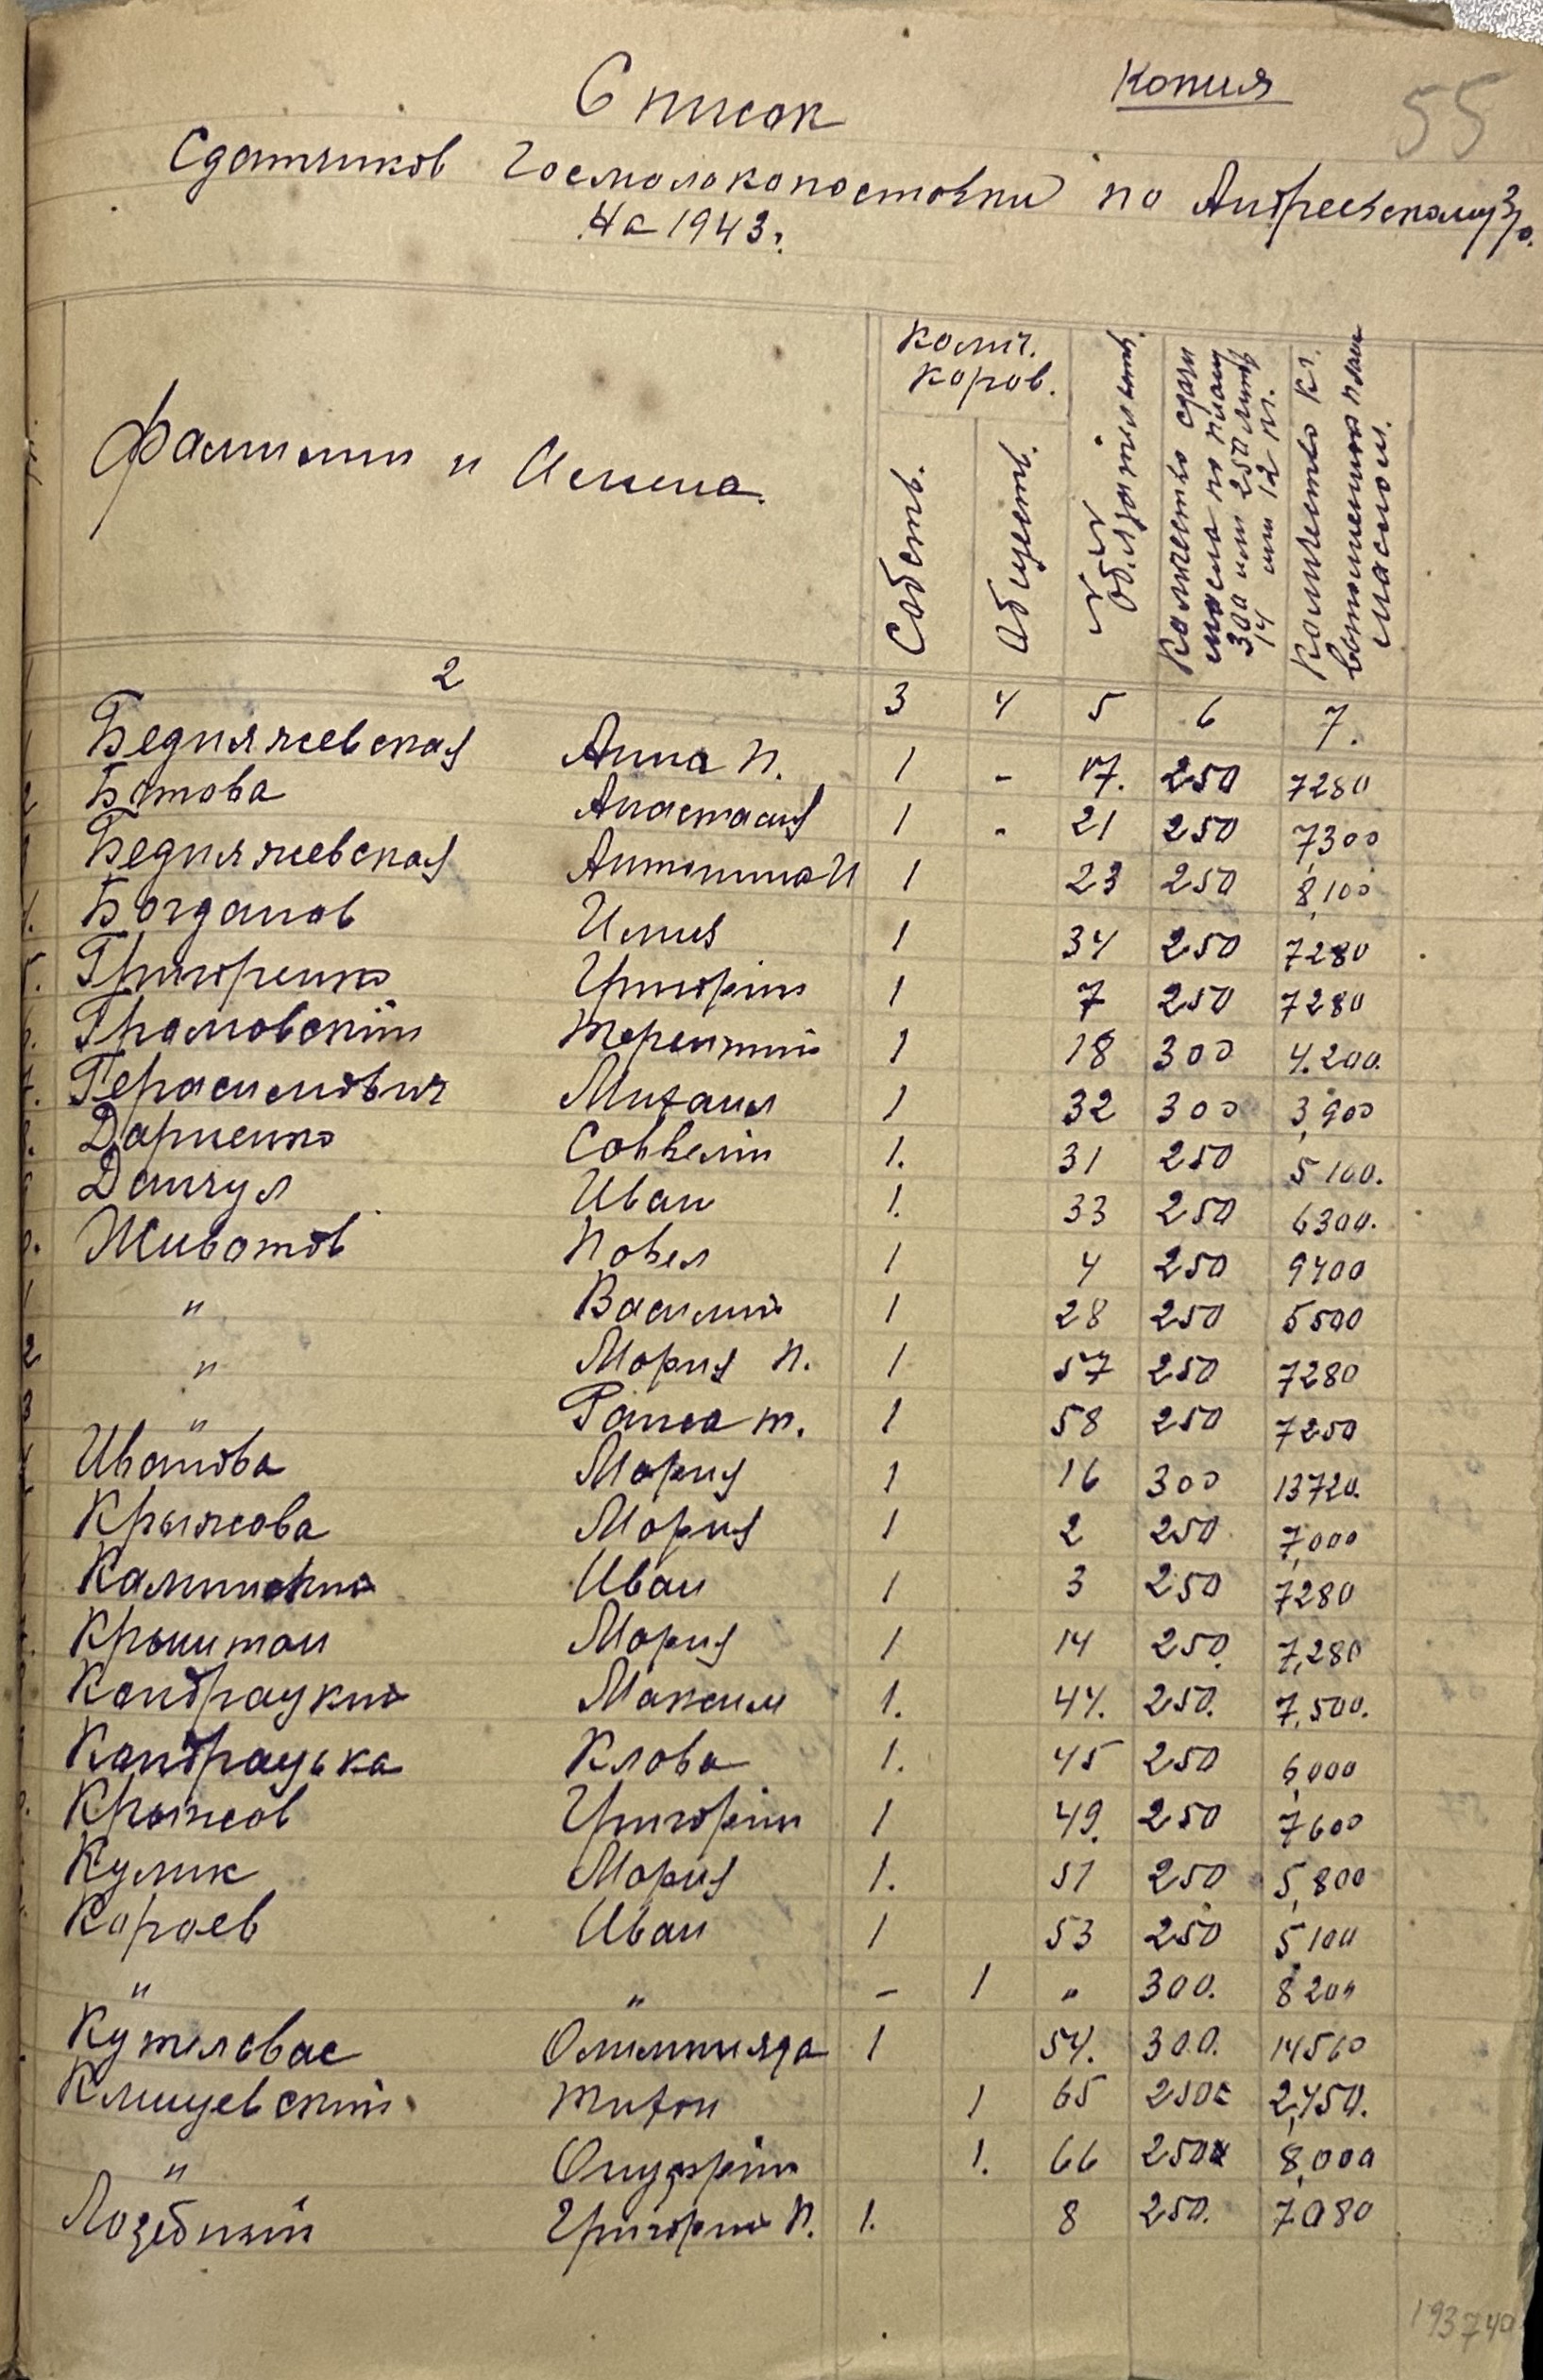 Копия
55
Список
Сдатчиков Госмолокопоставки по Андреевскому З/о.
На 1943 г.
Фамилии и Имена.
колич. коров.
Собств.
Обществ.
№№ Обязательств.
Количество сдачи молока по плану 300 или 250 литров 14 или 12 кг.
Количество кг. выполнения плана маслом.
2 3 4 5 6 7.
1 Бедняжевская Анна П. 1 - 17. 250 7280
2 Ботова Анастасия 1 - 21 250 7,300
Бедняжевская Антонина И 1 23 250 8,100
4. Богданов Илия 1 34 250 7280
5. Григоренко Григорий 1 7 250 7280
6. Грамовский Терентий 1 18 300 4.200.
7. Герасимович Михаил 1 32 300 3,900
8. Дариенко Савелий 1. 31 250 5100.
Данчул Иван 1. 33 250 6300.
0. Животов Павел 1 4 250 9400
1 " Василий 1 28 250 5500
2 " Мария П. 1 57 250 7280
3 " Раиса т. 1 58 250 7250
Иванова Мария 1 16 300 13720.
Крыжова Мария 1 2 250 7,000
Калинский Иван 1 3 250 7280
Крыштан Мария 1 14 250. 7,280
Кондрацкий Максим 1. 44. 250. 7,500.
Кондрацька Клава 1. 45 250 6,000
Крыжов Григорий 1 49. 250 7600
Кулик Мария 1. 51 250 5,800
Караев Иван 1 53 250 5,100
" " - 1 " 300. 8200
Кутелевас Олимпияда 1 54. 300. 14560
Клищевский Тихон 1 65 250 2,450.
" Онуфрий 1. 66 250 8,000
Лозебный Григорий П. 1. 8 250. 7080
193740